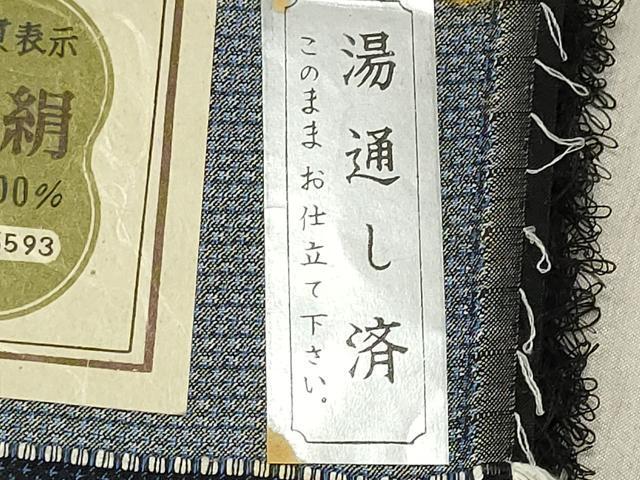 湯通し済
このままお仕立て下さい。
表示
絹
00%
593